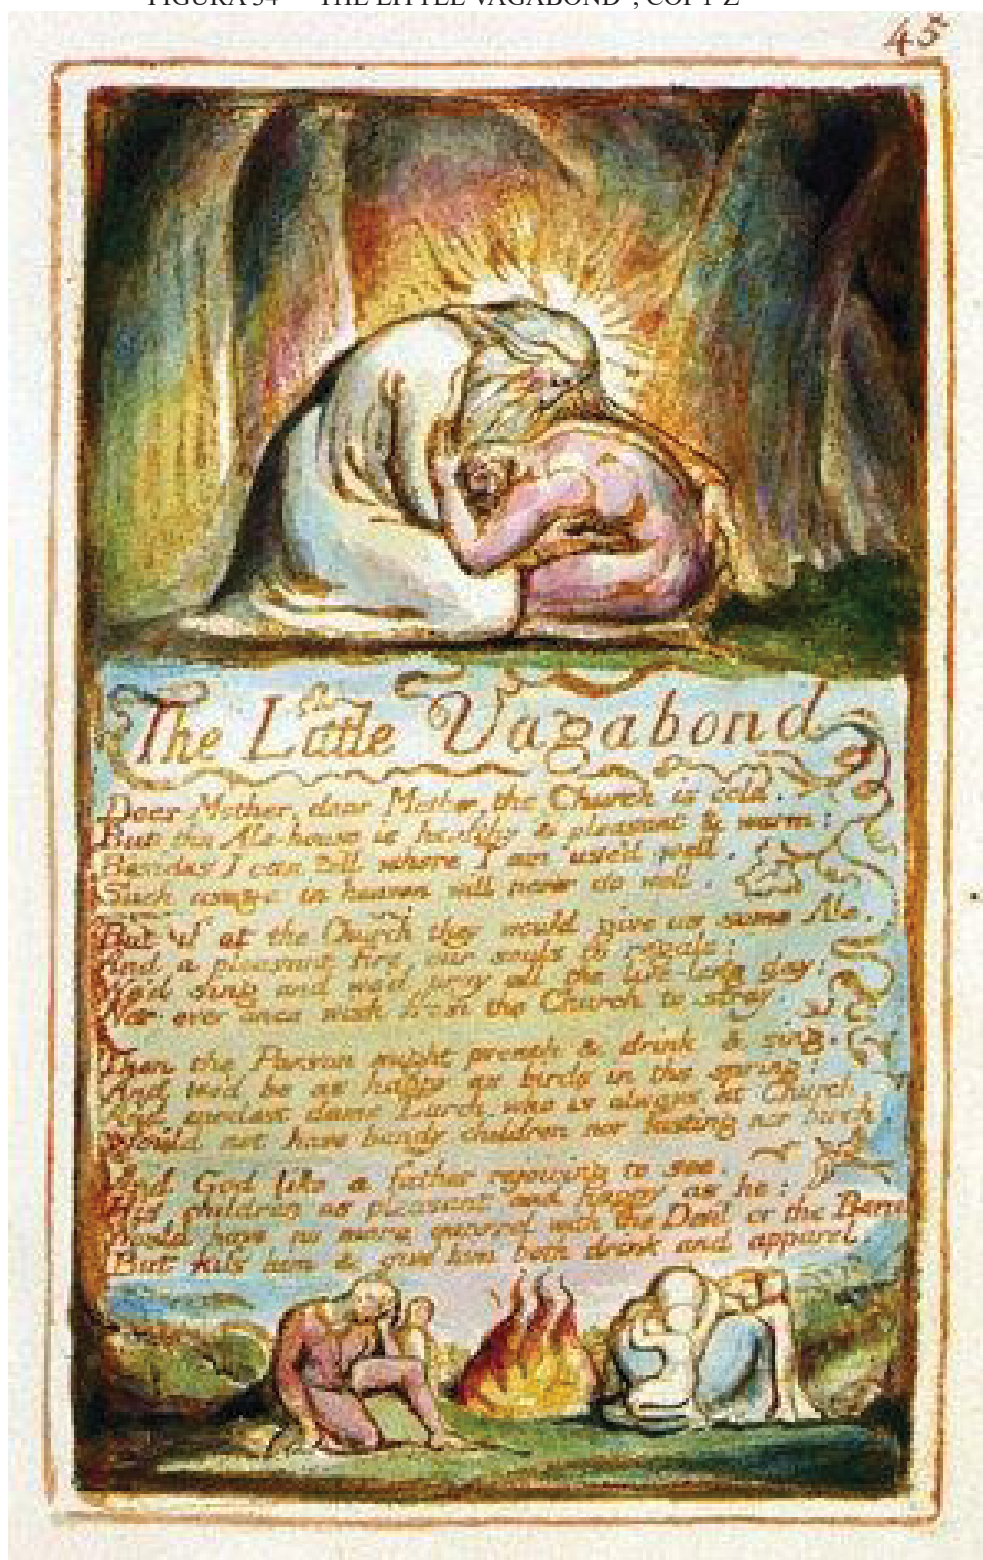 FIGURA 34 – “THE LITTLE VAGABOND”, COPY Z
45
The Little Vagabond
Dear Mother, dear Mother, the Church is cold.
But the Ale-house is healthy & pleasant & warm:
Besides I can tell where I am use'd well.
Such usage in heaven will never do well.
But if at the Church they would give us some Ale.
And a pleasant fire, our souls to regale:
We'd sing and we'd pray all the live-long day:
Nor ever once wish from the Church to stray.
Then the Parson might preach & drink & sing.
And we'd be as happy as birds in the spring:
And modest dame Lurch, who is always at Church
Would not have bandy children nor fasting nor birch
And God like a father rejoicing to see.
His children as pleasant and happy as he:
Would have no more quarrel with the Devil or the Barrel
But kiss him & give him both drink and apparel.